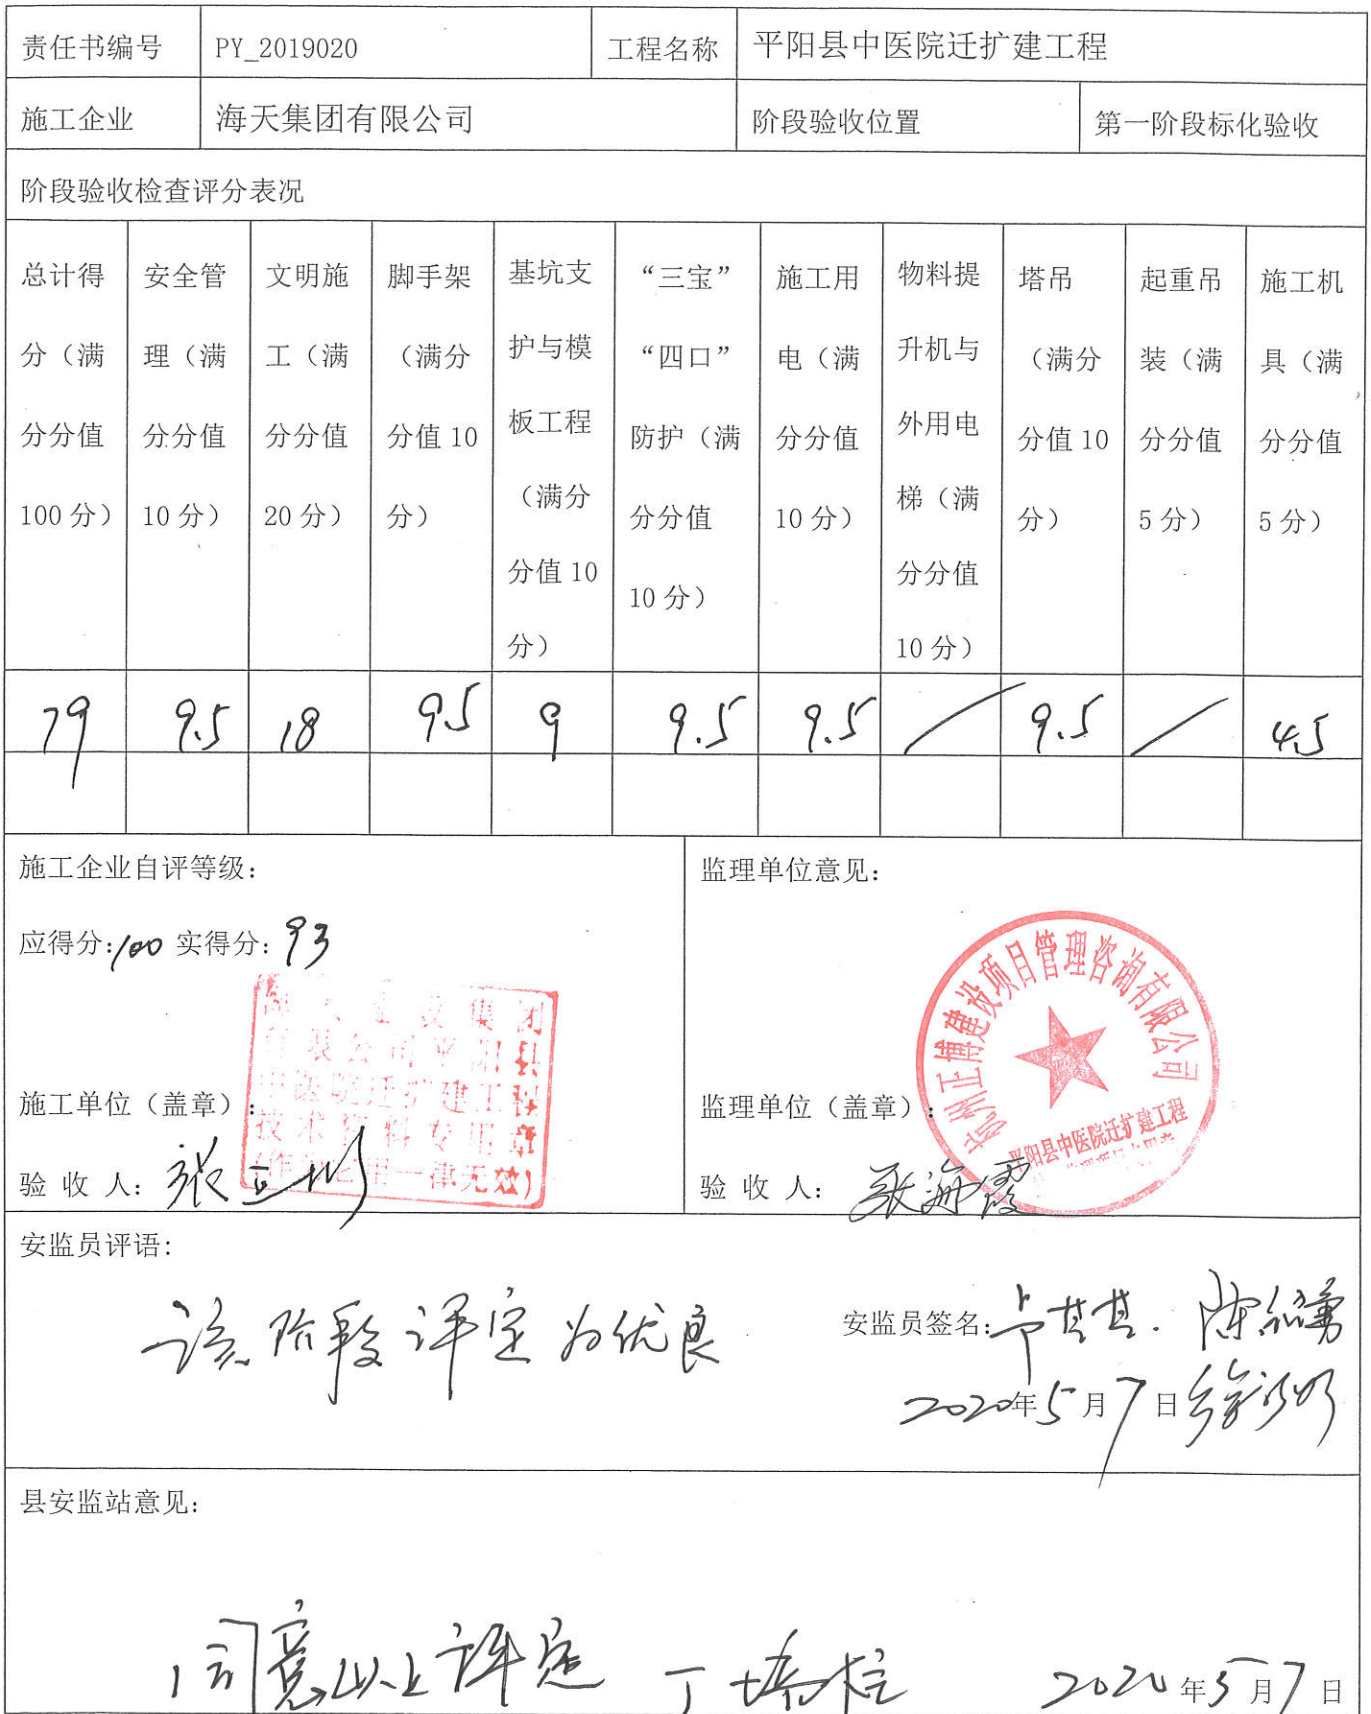 责任书编号 PY_2019020 工程名称 平阳县中医院迁扩建工程
施工企业 海天集团有限公司 阶段验收位置 第一阶段标化验收
阶段验收检查评分表况
总计得分（满分分值100分） 安全管理（满分分值10分） 文明施工（满分分值20分） 脚手架（满分分值10分） 基坑支护与模板工程（满分分值10分） “三宝”“四口”防护（满分分值10分） 施工用电（满分分值10分） 物料提升机与外用电梯（满分分值10分） 塔吊（满分分值10分） 起重吊装（满分分值5分） 施工机具（满分分值5分）
79 9.5 18 9.5 9 9.5 9.5 / 9.5 / 4.5
施工企业自评等级： 监理单位意见：
应得分:100 实得分:93
集团
有限公司平阳县
中医院迁扩建工程
技术资料专用章
一律无效)
杭州正博建设项目管理咨询有限公司
平阳县中医院迁扩建工程
施工单位（盖章）： 监理单位（盖章）：
验 收 人： 验 收 人： 张海霞
安监员评语:
该阶段评定为优良 安监员签名:
2020年5月7日
县安监站意见:
同意以上评定 2020年5月7日